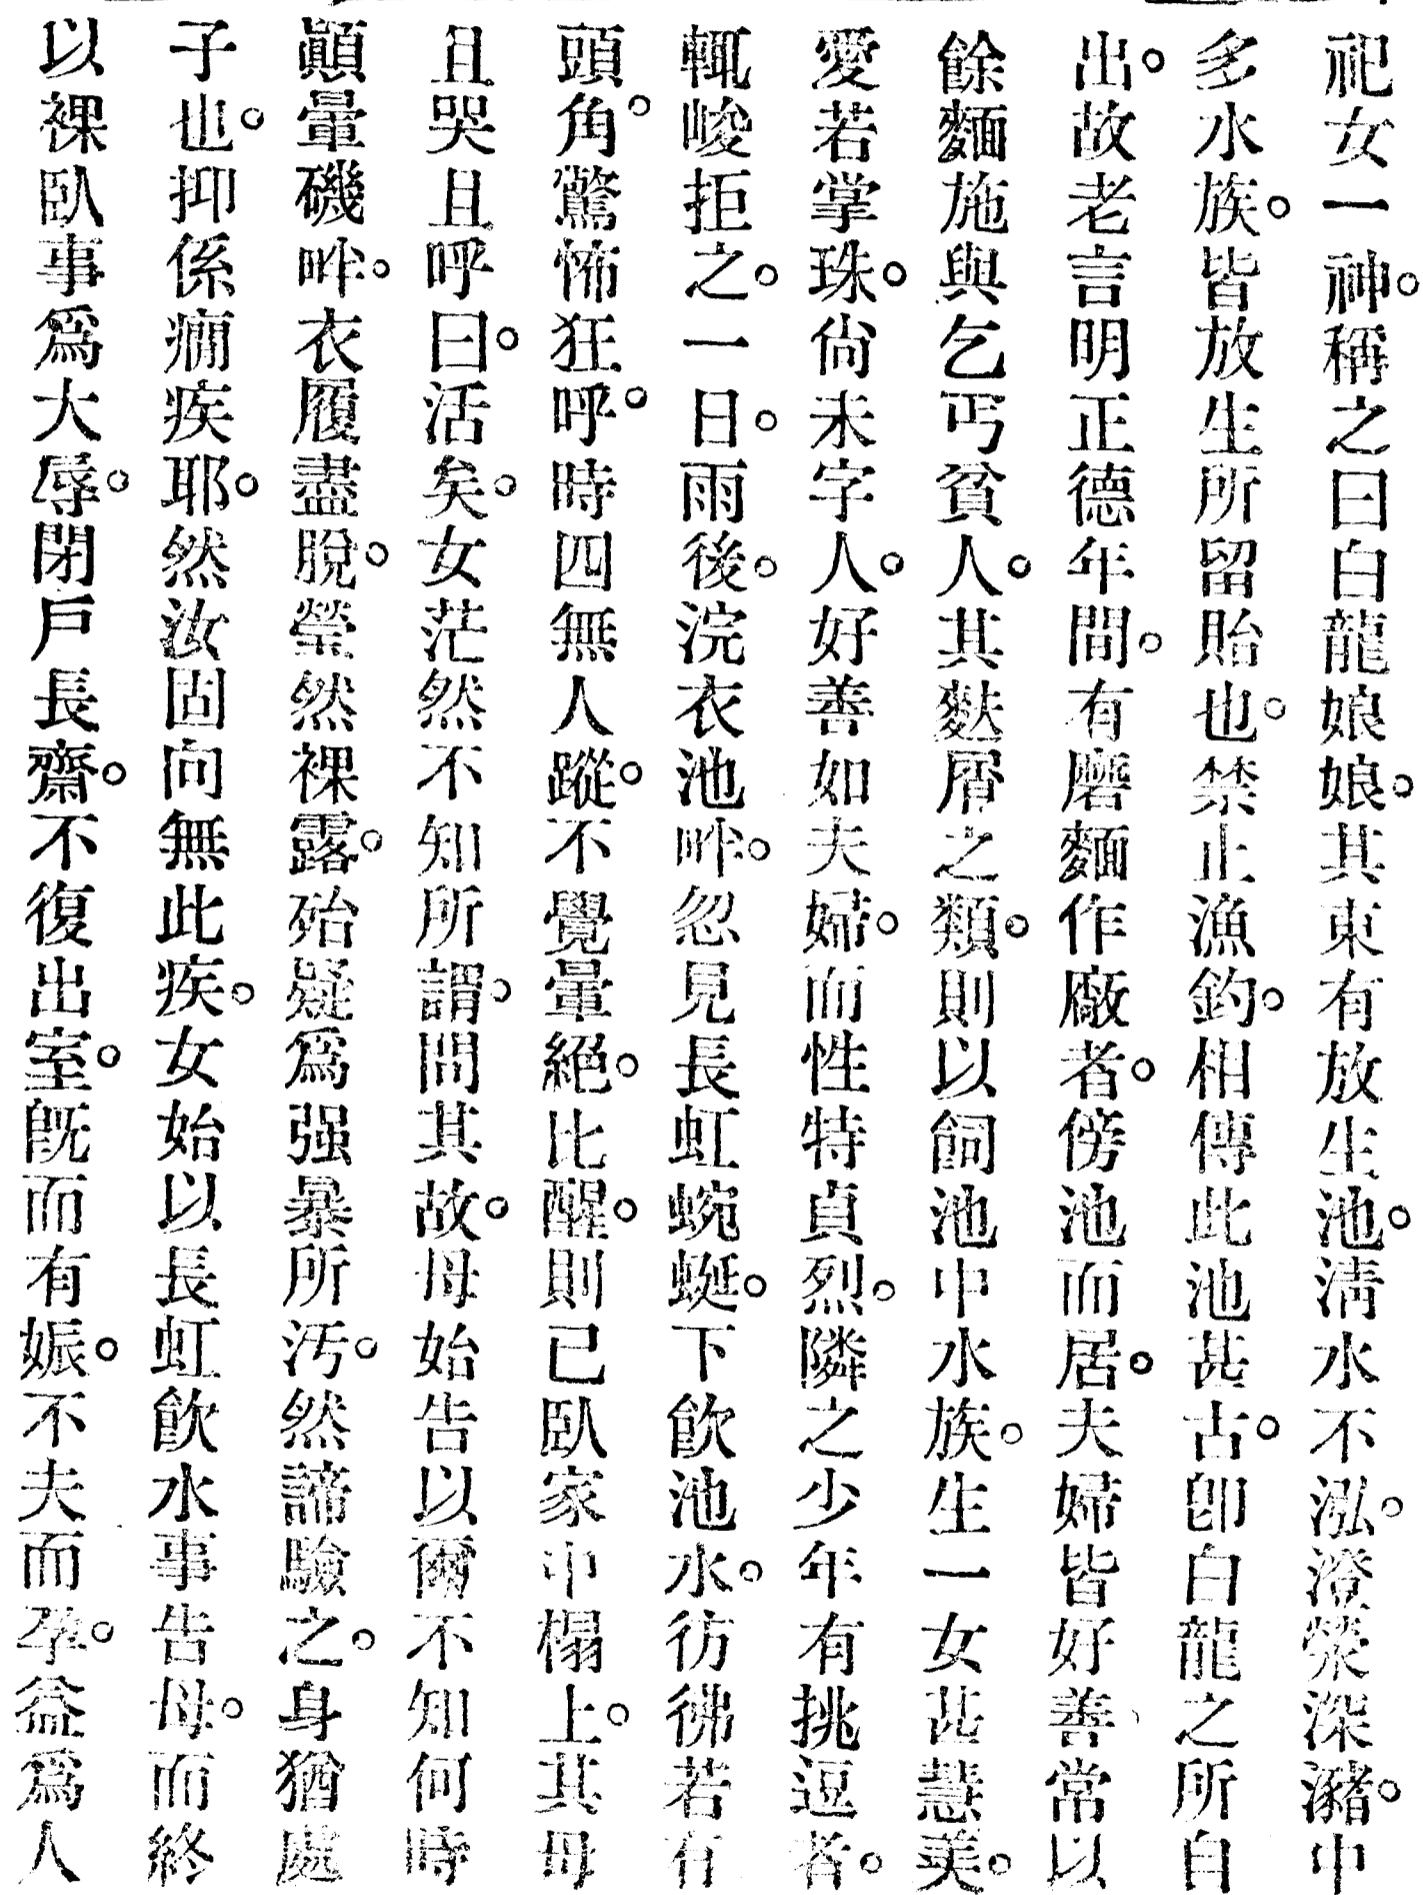 祀女一神。稱之曰白龍娘娘。其東有放生池。淸水不泓。澄滎深瀦。中
多水族。皆放生所留貽也。禁止漁釣。相傳此池甚古。卽白龍之所自
出。故老言明正德年間。有磨麵作厰者。傍池而居。夫婦皆好善、常以
餘麵施與乞丐貧人。其麩屑之類。則以飼池中水族。生一女甚慧美。
愛若掌珠。尙未字人。好善如夫婦。而性特貞烈。隣之少年有挑逗者。
輒峻拒之。一日。雨後。浣衣池畔。忽見長虹蜿蜒。下飮池水。彷彿若有
頭角。驚怖狂呼。時四無人蹤。不覺暈絕。比醒。則已臥家中榻上。其母
且哭且呼曰。活矣。女茫然不知所謂。問其故。母始告以爾不知何時
顚暈磯畔。衣履盡脫。瑩然裸露。殆疑爲强暴所汚。然諦驗之。身猶處
子也。抑係癇疾耶。然汝固向無此疾。女始以長虹飮水事告母。而終
以裸臥事爲大辱。閉戶長齋。不復出室。旣而有娠。不夫而孕。益爲人